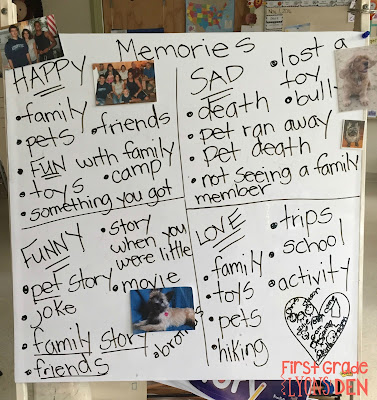 Memories
HAPPY
• family
• pets
• friends
• FUN with family
• toys
• camp
• something you got
SAD
• lost a
toy
• death
• bully
• pet ran away
• pet death
• not seeing a family
member
FUNNY
• story
when you
were little
• pet story
• movie
• joke
• family story
• brothers
• friends
LOVE
• trips
• school
• family
• activity
• toys
• pets
• hiking
First Grade
LYONS DEN